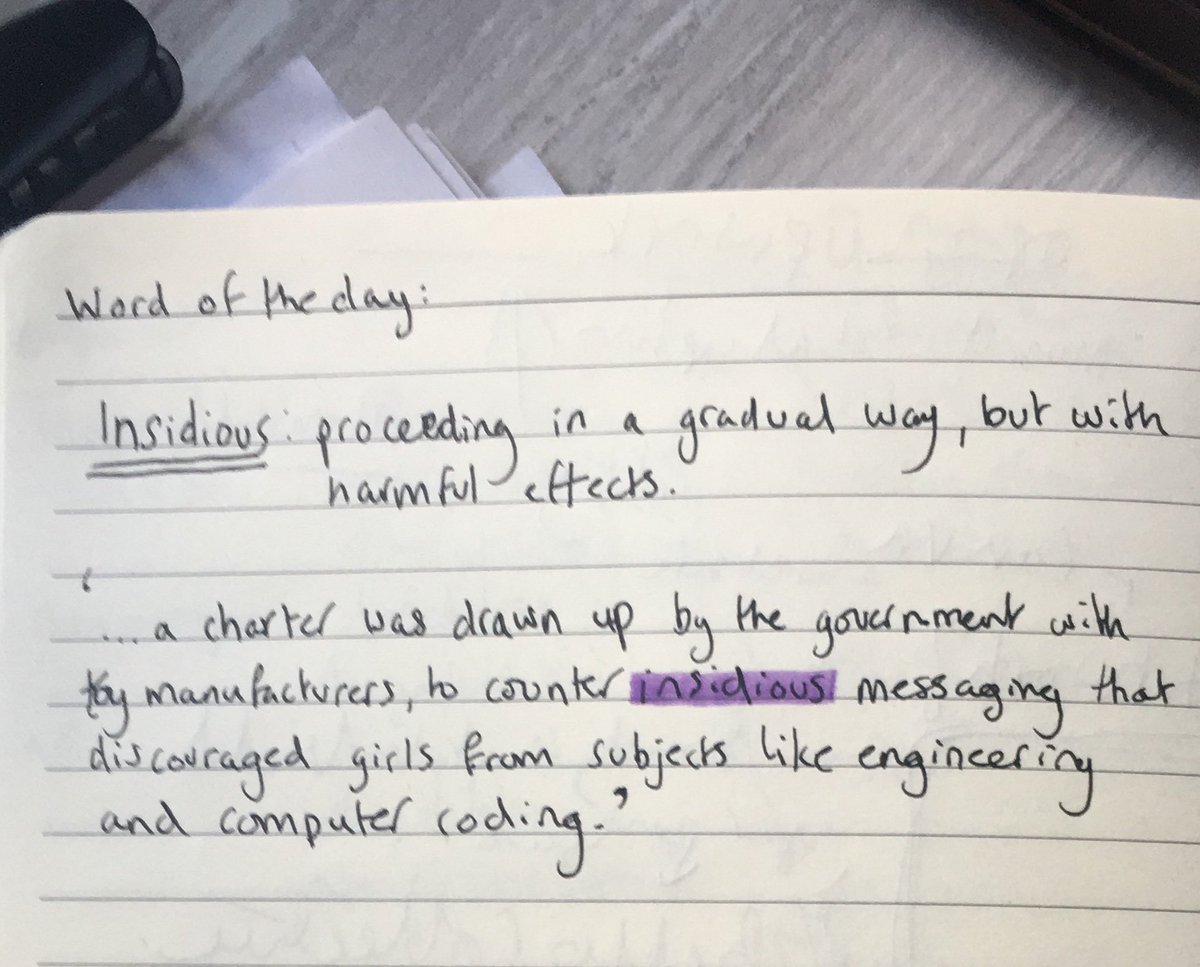 Word of the day:
Insidious: proceeding in a gradual way, but with
harmful effects.
'... a charter was drawn up by the government with
toy manufacturers, to counter insidious messaging that
discouraged girls from subjects like engineering
and computer coding.'